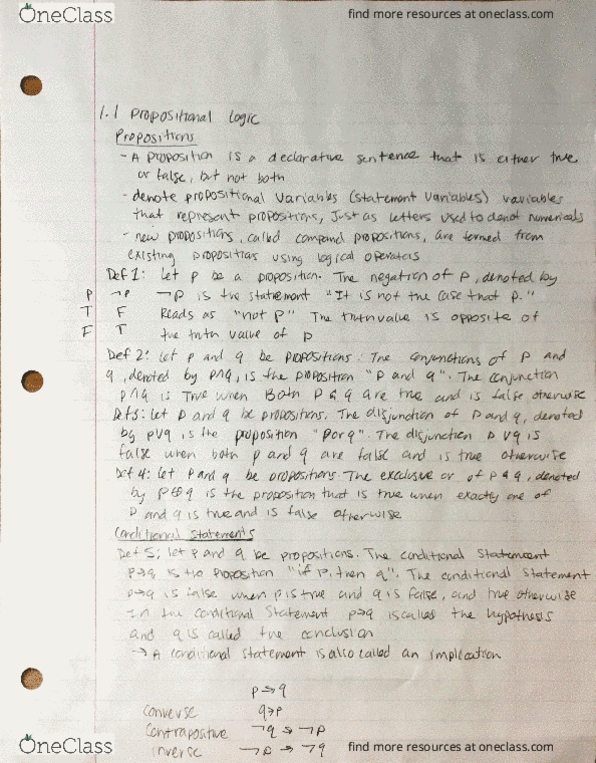 OneClass
find more resources at oneclass.com
1.1 Propositional Logic
Propositions
- A proposition is a declarative sentence that is either true
or false, but not both
- denote propositional variables (statement variables) variables
that represent propositions, just as letters used to denot numericals
- new propositions, called compound propositions, are formed from
existing propositions using logical operators
Def 1: Let p be a proposition. The negation of p, denoted by
P ¬P ¬p is the statement "It is not the case that p."
T F Reads as "not p" The truth value is opposite of
F T the truth value of p
Def 2: Let p and q be propositions. The conjunctions of p and
q, denoted by p∧q, is the proposition "p and q". The conjunction
p∧q is True when Both p & q are true and is false otherwise
Def 3: Let p and q be propositions. The disjunction of p and q, denoted
by p∨q is the proposition "p or q". The disjunction p∨q is
false when both p and q are false and is true otherwise
Def 4: Let p and q be propositions. The exclusive or of p & q, denoted
by p⊕q is the proposition that is true when exactly one of
p and q is true and is false otherwise
Conditional Statements
Def 5: Let p and q be propositions. The conditional statement
p→q is the proposition "if p, then q". The conditional statement
p→q is false when p is true and q is false, and true otherwise
In the conditional statement p→q is called the hypothesis
and q is called the conclusion
→ A conditional statement is also called an implication
p→q
Converse q→p
Contrapositive ¬q → ¬p
Inverse ¬p → ¬q
OneClass
find more resources at oneclass.com